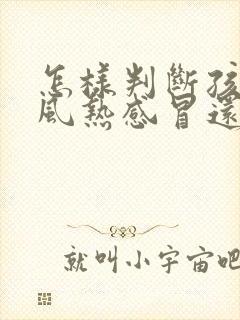 怎樣判斷孩
風熱感冒還
就叫小宇宙吧